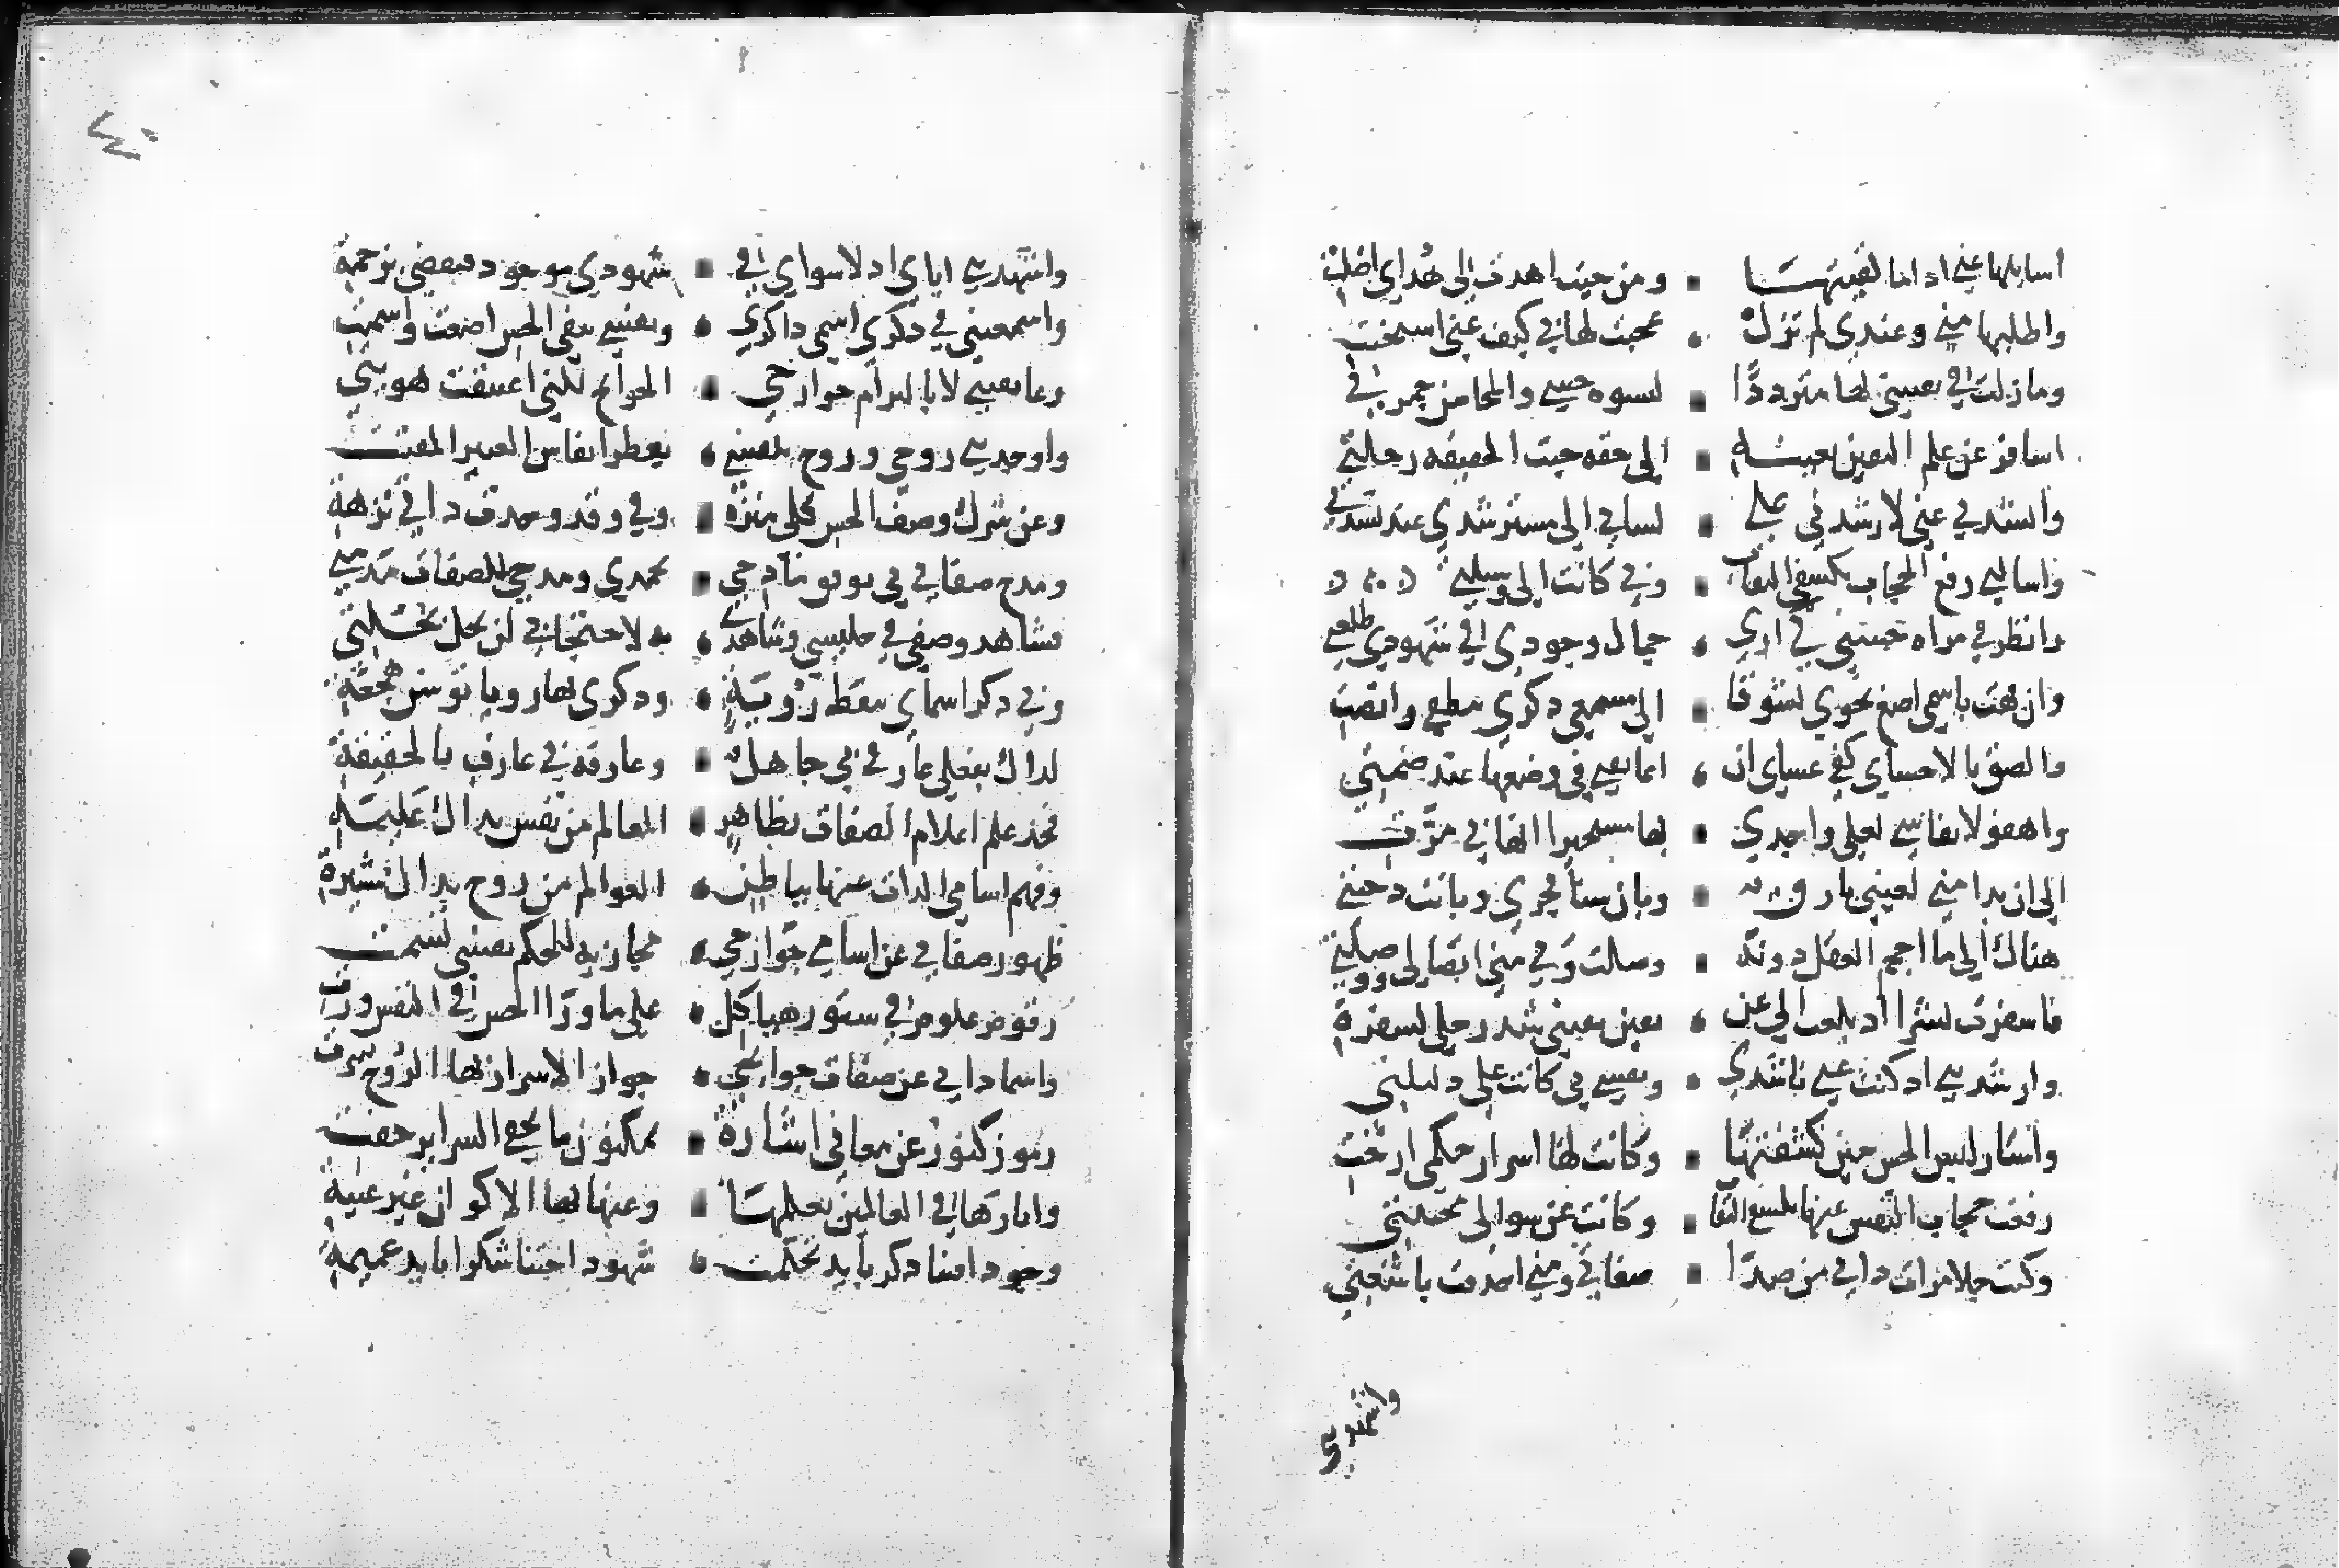 اسايلها عني اذا ما لقيتها ومن حيث اهدت الى هداي اضلت
واطلبها مني وعندي لم تزل عجبت لها بي كيف عني استخفت
وما زلت في نفسي لها مترددا لنشوه حسي والمحاسن خمرتي
اسافر عن علم اليقين لعينه الى حقه حيث الحقيقه رحلتي
وانشدني عني لارشدني على لساني الى مسترشدي عند نشدتي
واسالني رفع الحجاب بكشفي النقاب وبي كانت الي وسيلتي
وانظر في مراه حسني كي ارى جمال وجودي في شهودي طلعتي
وان فهت باسمي اصغ نحوي تشوقا الى مسمعي ذكري بنطقي وانصت
والصق بالاحشاي كفي عساي ان اعانقها في وضعها عند ضمتي
واهفو لانفاسي لعلي واجدي بها مستجيزا انها بي مرت
الى ان بدا مني لعيني بارق وبان سنا فجري وبانت دجنتي
هناك الى ما احجم العقل دونه وصلت وبي مني اتصالي ووصلتي
فاسفرت بشرا اذ بلغت الي عن يقين يقيني شد رحل لسفرة
وارشدتني اذ كنت عني ناشدي ونفسي بي كانت علي دليلتي
واستار لبس الحس حين كشفتها وكانت لها اسرار حكمي ارخت
رفعت حجاب النفس عنها بكشفي النقا وكانت عن سوالي مجيبتي
وكنت جلا مرات ذاتي من صدا صفاتي ومني احدقت باشعتي
واشهدتني
واشهدتني اياي اذ لا سواي في شهودي موجود فيقضي بزحمة
واسمعني في ذكري اسمي ذاكري ونفسي بنفي الحس اصغت واسمت
وعانقتني لا بالتزام جوارحي الجوانح لكني اعتنقت هويتي
واوجدتني روحي وروح تنفسي يعطر انفاس العبير المفتت
وعن شرك وصف الحس كلي منزه وفي وقد وحدت ذاتي نزهة
ومدح صفاتي بي يوفق مادحي لحمدي ومدحي بالصفات مذمتي
فشاهد وصفي في جليسي وشاهدي به لاحتجابي لن يحل بحلتي
وبي ذكر اسماي تيقظ روية وذكري بها رويا توسن هجعة
لذاك بفعلي عارفي بي جاهل وعارفه بي عارف بالحقيقة
فخذ علم اعلام الصفات بظاهر المعالم من نفس بذاك عليمة
وفهم اسامي الذات عنها بباطن العوالم من روح بذاك مشيرة
ظهور صفاتي عن اسامي جوارحي مجازيه للحكم نفسي تسمت
رقوم علوم في ستور هياكل على ما ورا الحس في النفس ورت
واسما ذاتي عن صفات جوانحي جوازا لاسرار بها الروح سرت
رموز كنوز عن معاني اشارة بمكنون ما يخفي السراير حفت
واثارها في العالمين بعلمها وعنها بها الاكوان غير غنية
وجود اقتنا ذكر بايد تحكمت شهود اجتنا شكر بايد عميمة